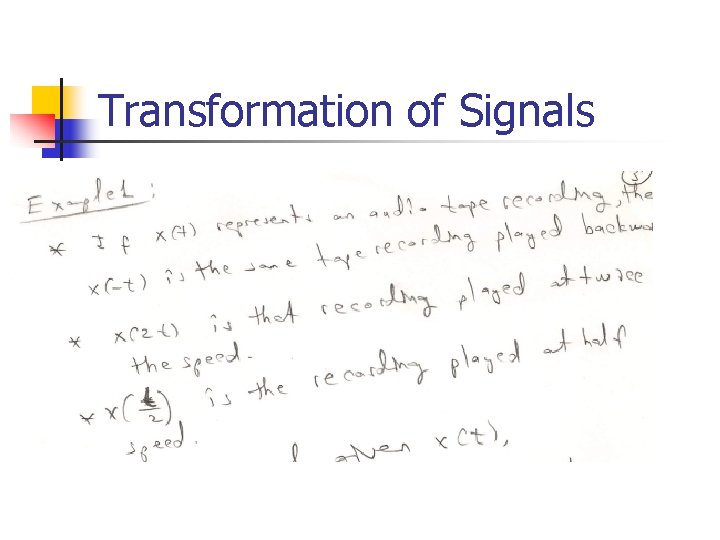 Transformation of Signals
(5)
Example 1:
* If x(t) represents an audio tape recording, the
x(-t) is the same tape recording played backwa
* x(2t) is that recording played at twice
the speed.
* x(t/2) is the recording played at half
speed.
given x(t),